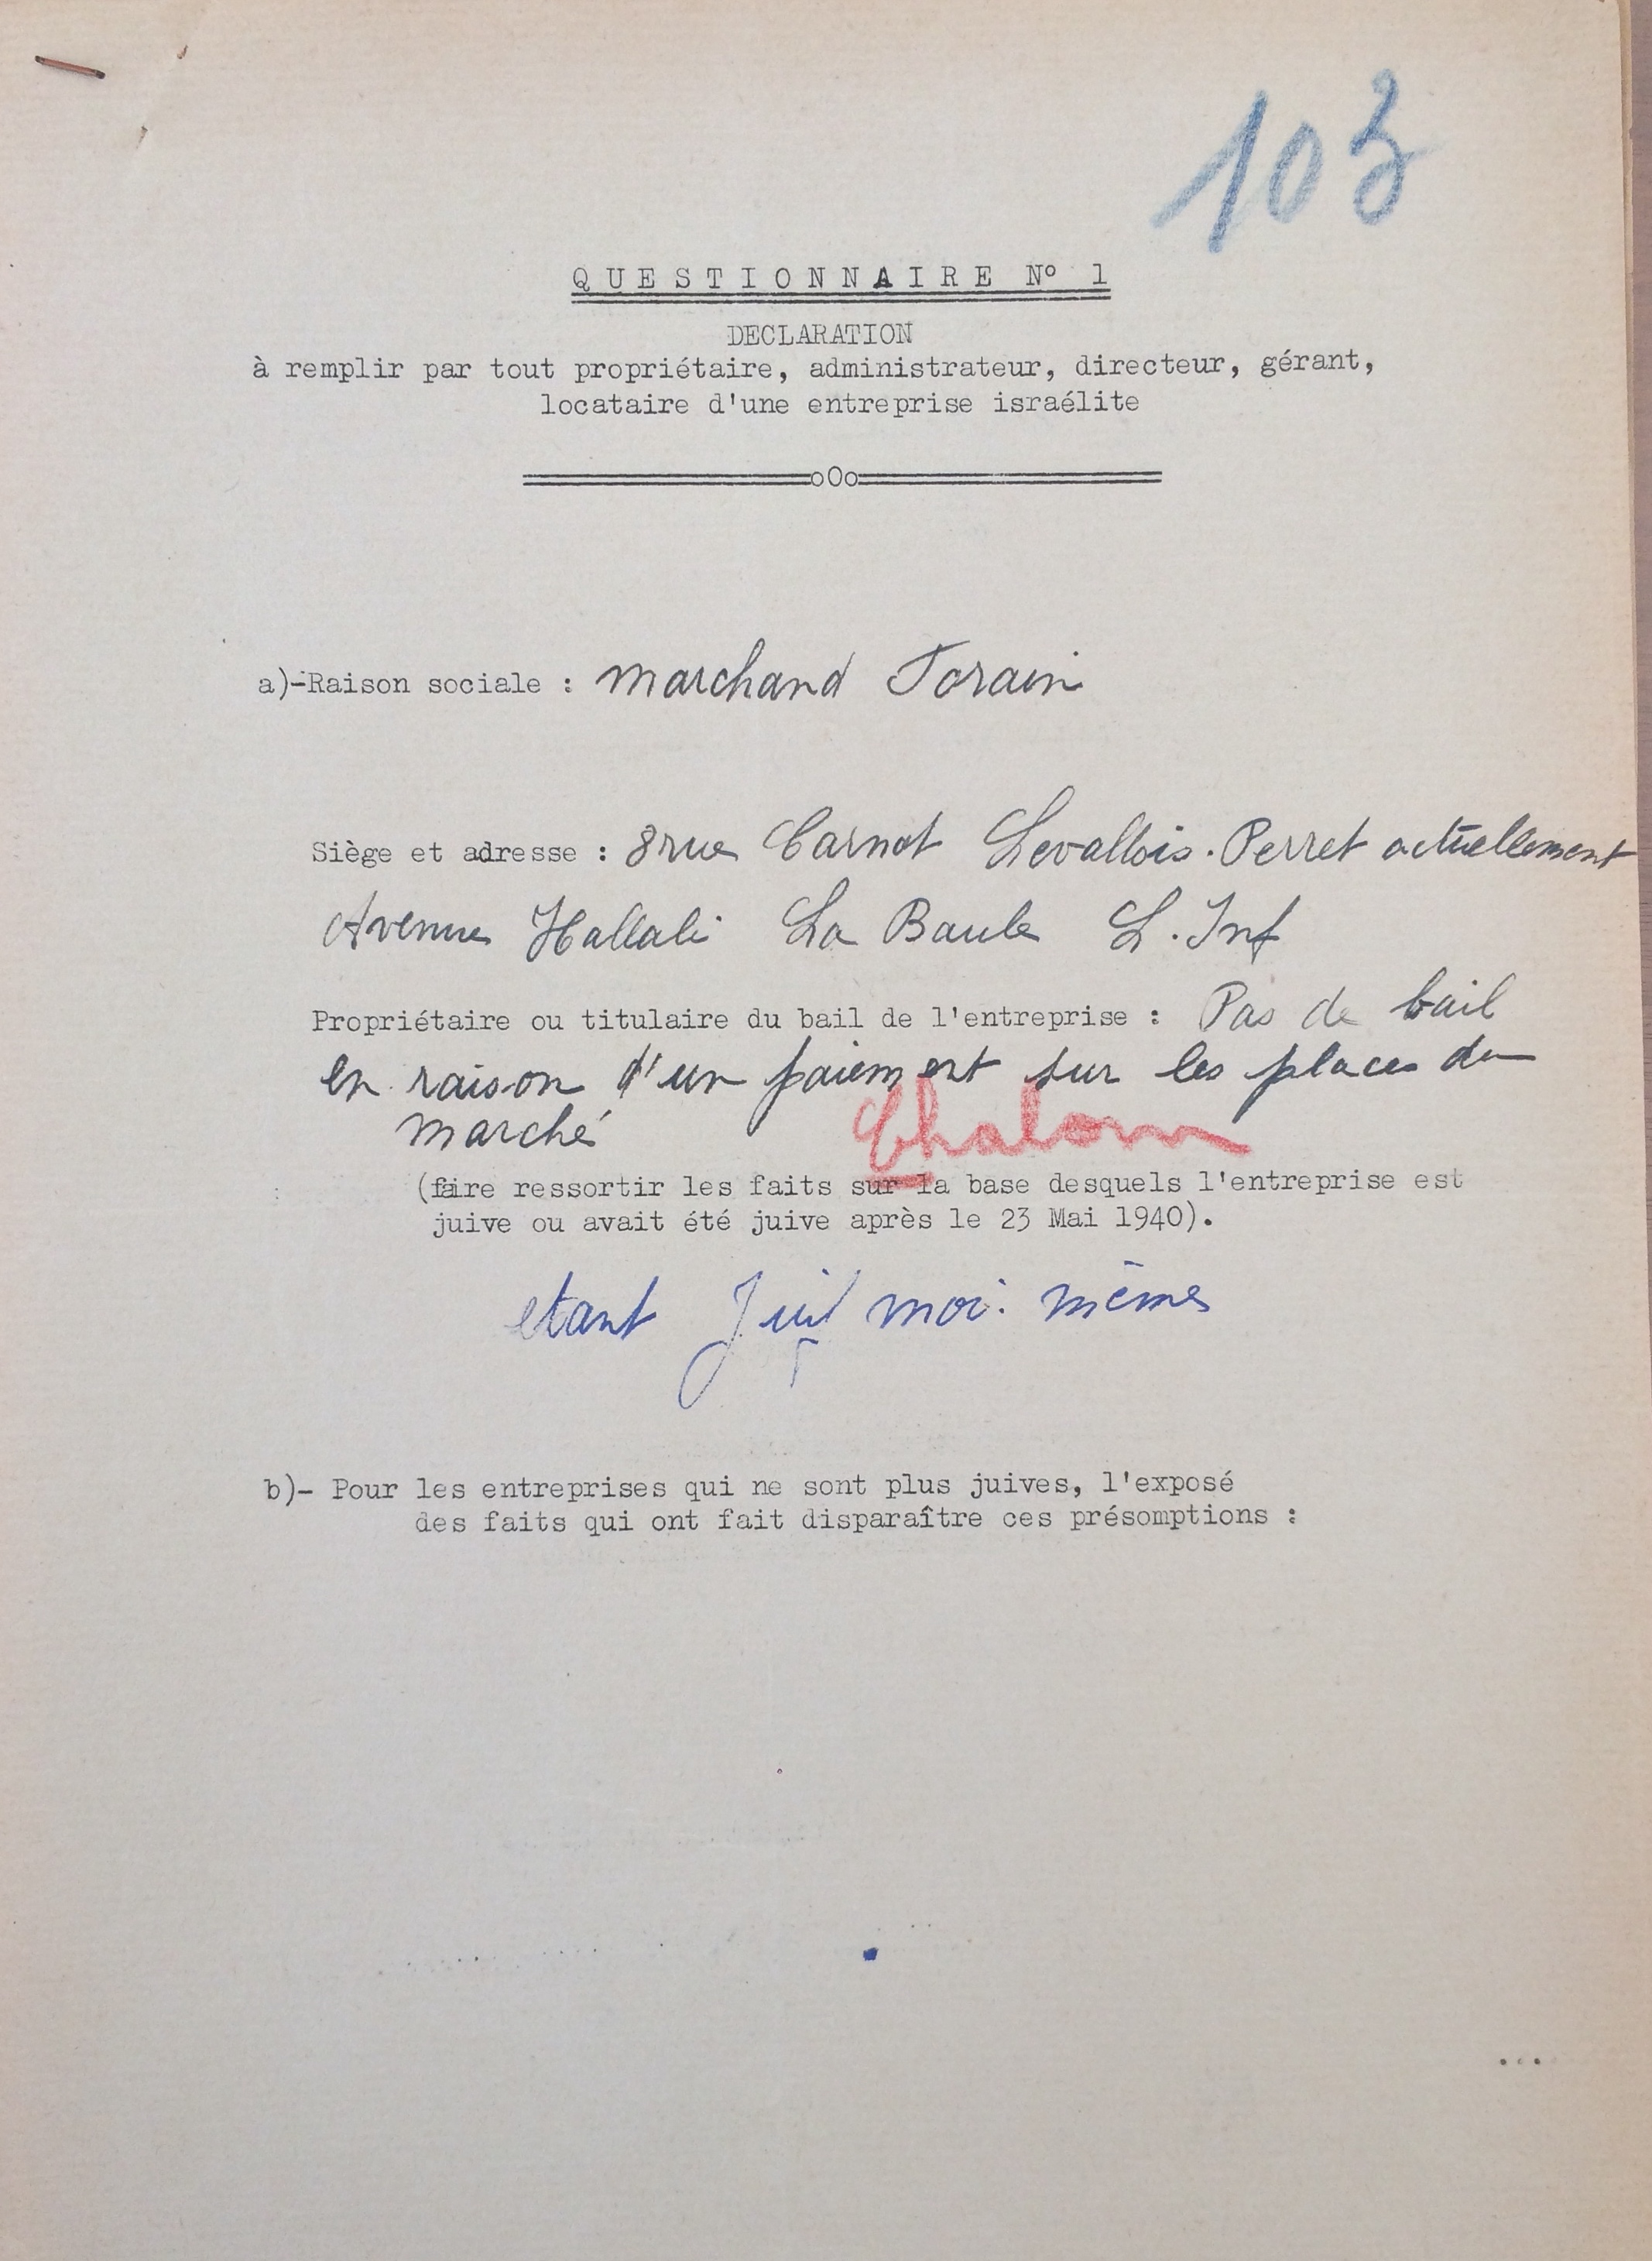 103
QUESTIONNAIRE N° 1
DECLARATION
à remplir par tout propriétaire, administrateur, directeur, gérant,
locataire d'une entreprise israélite
oOo
a)-Raison sociale : Marchand Forain
Siège et adresse : 8 rue Carnot Levallois-Perret actuellement
Avenue Hallali La Baule L. Inf
Propriétaire ou titulaire du bail de l'entreprise : Pas de bail
en raison d'un paiement sur les places du
marché
Chalom
(faire ressortir les faits sur la base desquels l'entreprise est
juive ou avait été juive après le 23 Mai 1940).
etant Juif moi-mêmes
b)- Pour les entreprises qui ne sont plus juives, l'exposé
des faits qui ont fait disparaître ces présomptions :
...